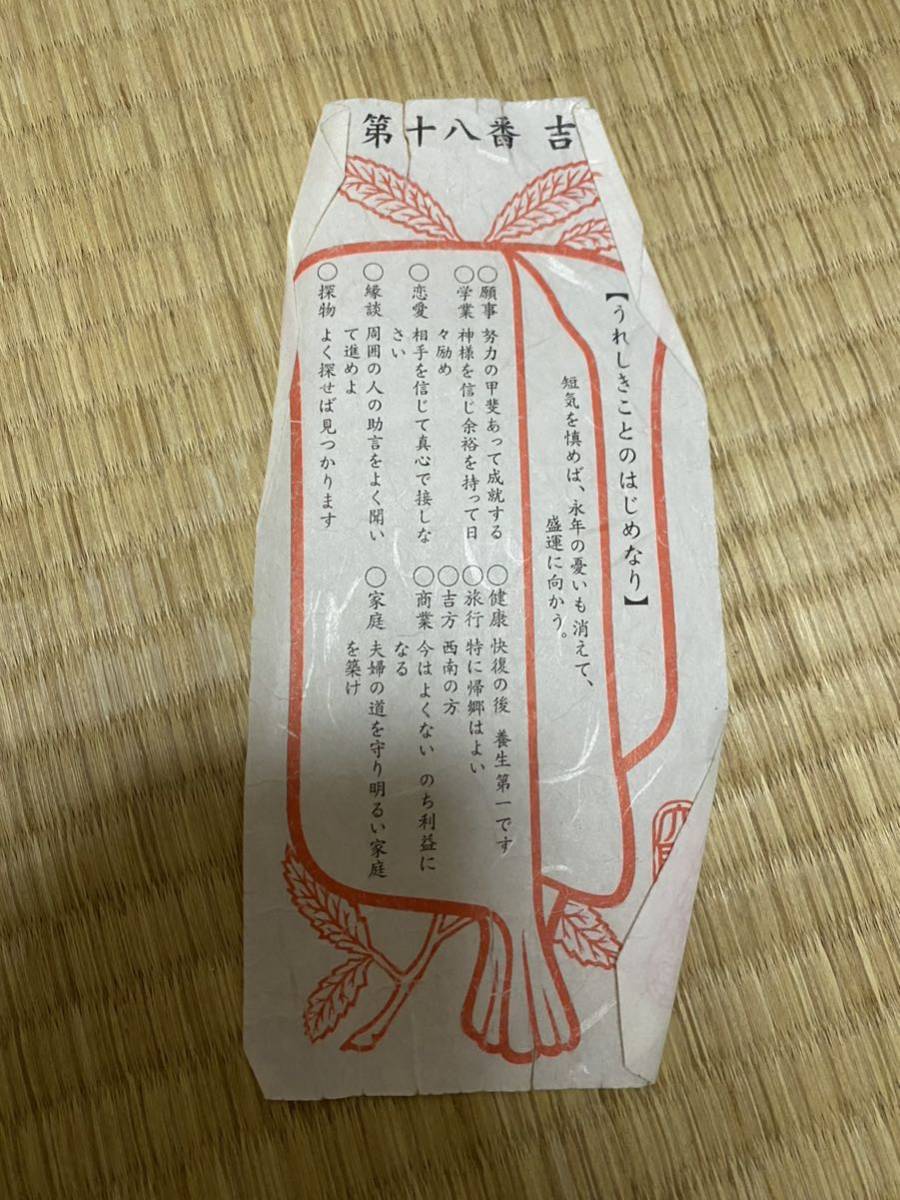 第十八番 吉
【うれしきことのはじめなり】
短気を慎めば、永年の憂いも消えて、
盛運に向かう。
○願事 努力の甲斐あって成就する
○学業 神様を信じ余裕を持って日
々励め
○恋愛 相手を信じて真心で接しな
さい
○縁談 周囲の人の助言をよく聞い
て進めよ
○探物 よく探せば見つかります
○健康 快復の後 養生第一です
○旅行 特に帰郷はよい
○吉方 西南の方
○商業 今はよくない のち利益に
なる
○家庭 夫婦の道を守り明るい家庭
を築け